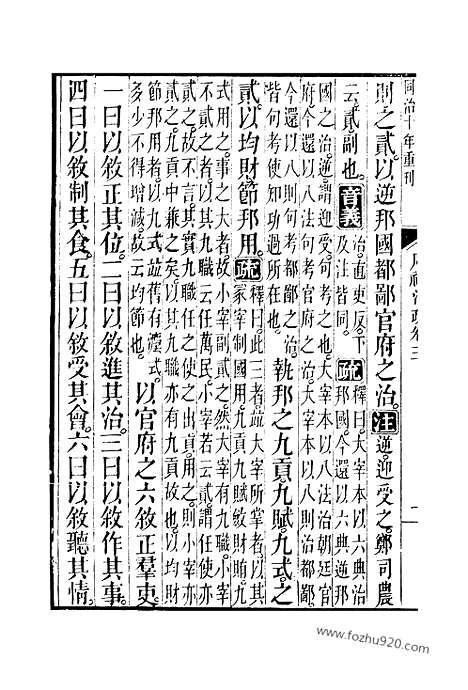 同治十年重刊
周禮注疏卷三
二
則之貳。以逆邦國都鄙官府之治。注逆迎受之。鄭司農
云貳副也。音義治直吏反。下
及注皆同。疏釋曰。大宰本以六典治
邦國。今還以六典逆邦
國之治。逆謂迎受。句考之也。大宰本以八法治朝廷官
府。今還以八法句考官府之治。大宰本以八則治都鄙。
今還以八則句考都鄙之治。
皆句考使知功過所在也。執邦之九貢九賦。九式之
貳。以均財節邦用。疏釋曰。此三者竝大宰所掌者。以其
冢宰制國用。九貢九賦斂財賄。九
式用之。事之大者。故小宰副貳之。然大宰有九職。小宰
不貳之者。以其九職云任萬民。小宰若云貳。謂任使亦
貳之。故不言。其實九職任使之出貢用之。則小宰亦
貳之。九貢中兼之矣。以其九職亦有九貢故也。以均財
節邦用者。以九式竝舊有灋式。
多少不得增減。故云均節也。以官府之六敘正羣吏。
一曰以敘正其位。二曰以敘進其治。三曰以敘作其事。
四曰以敘制其食。五曰以敘受其會。六曰以敘聽其情。
www.fozhu920.com